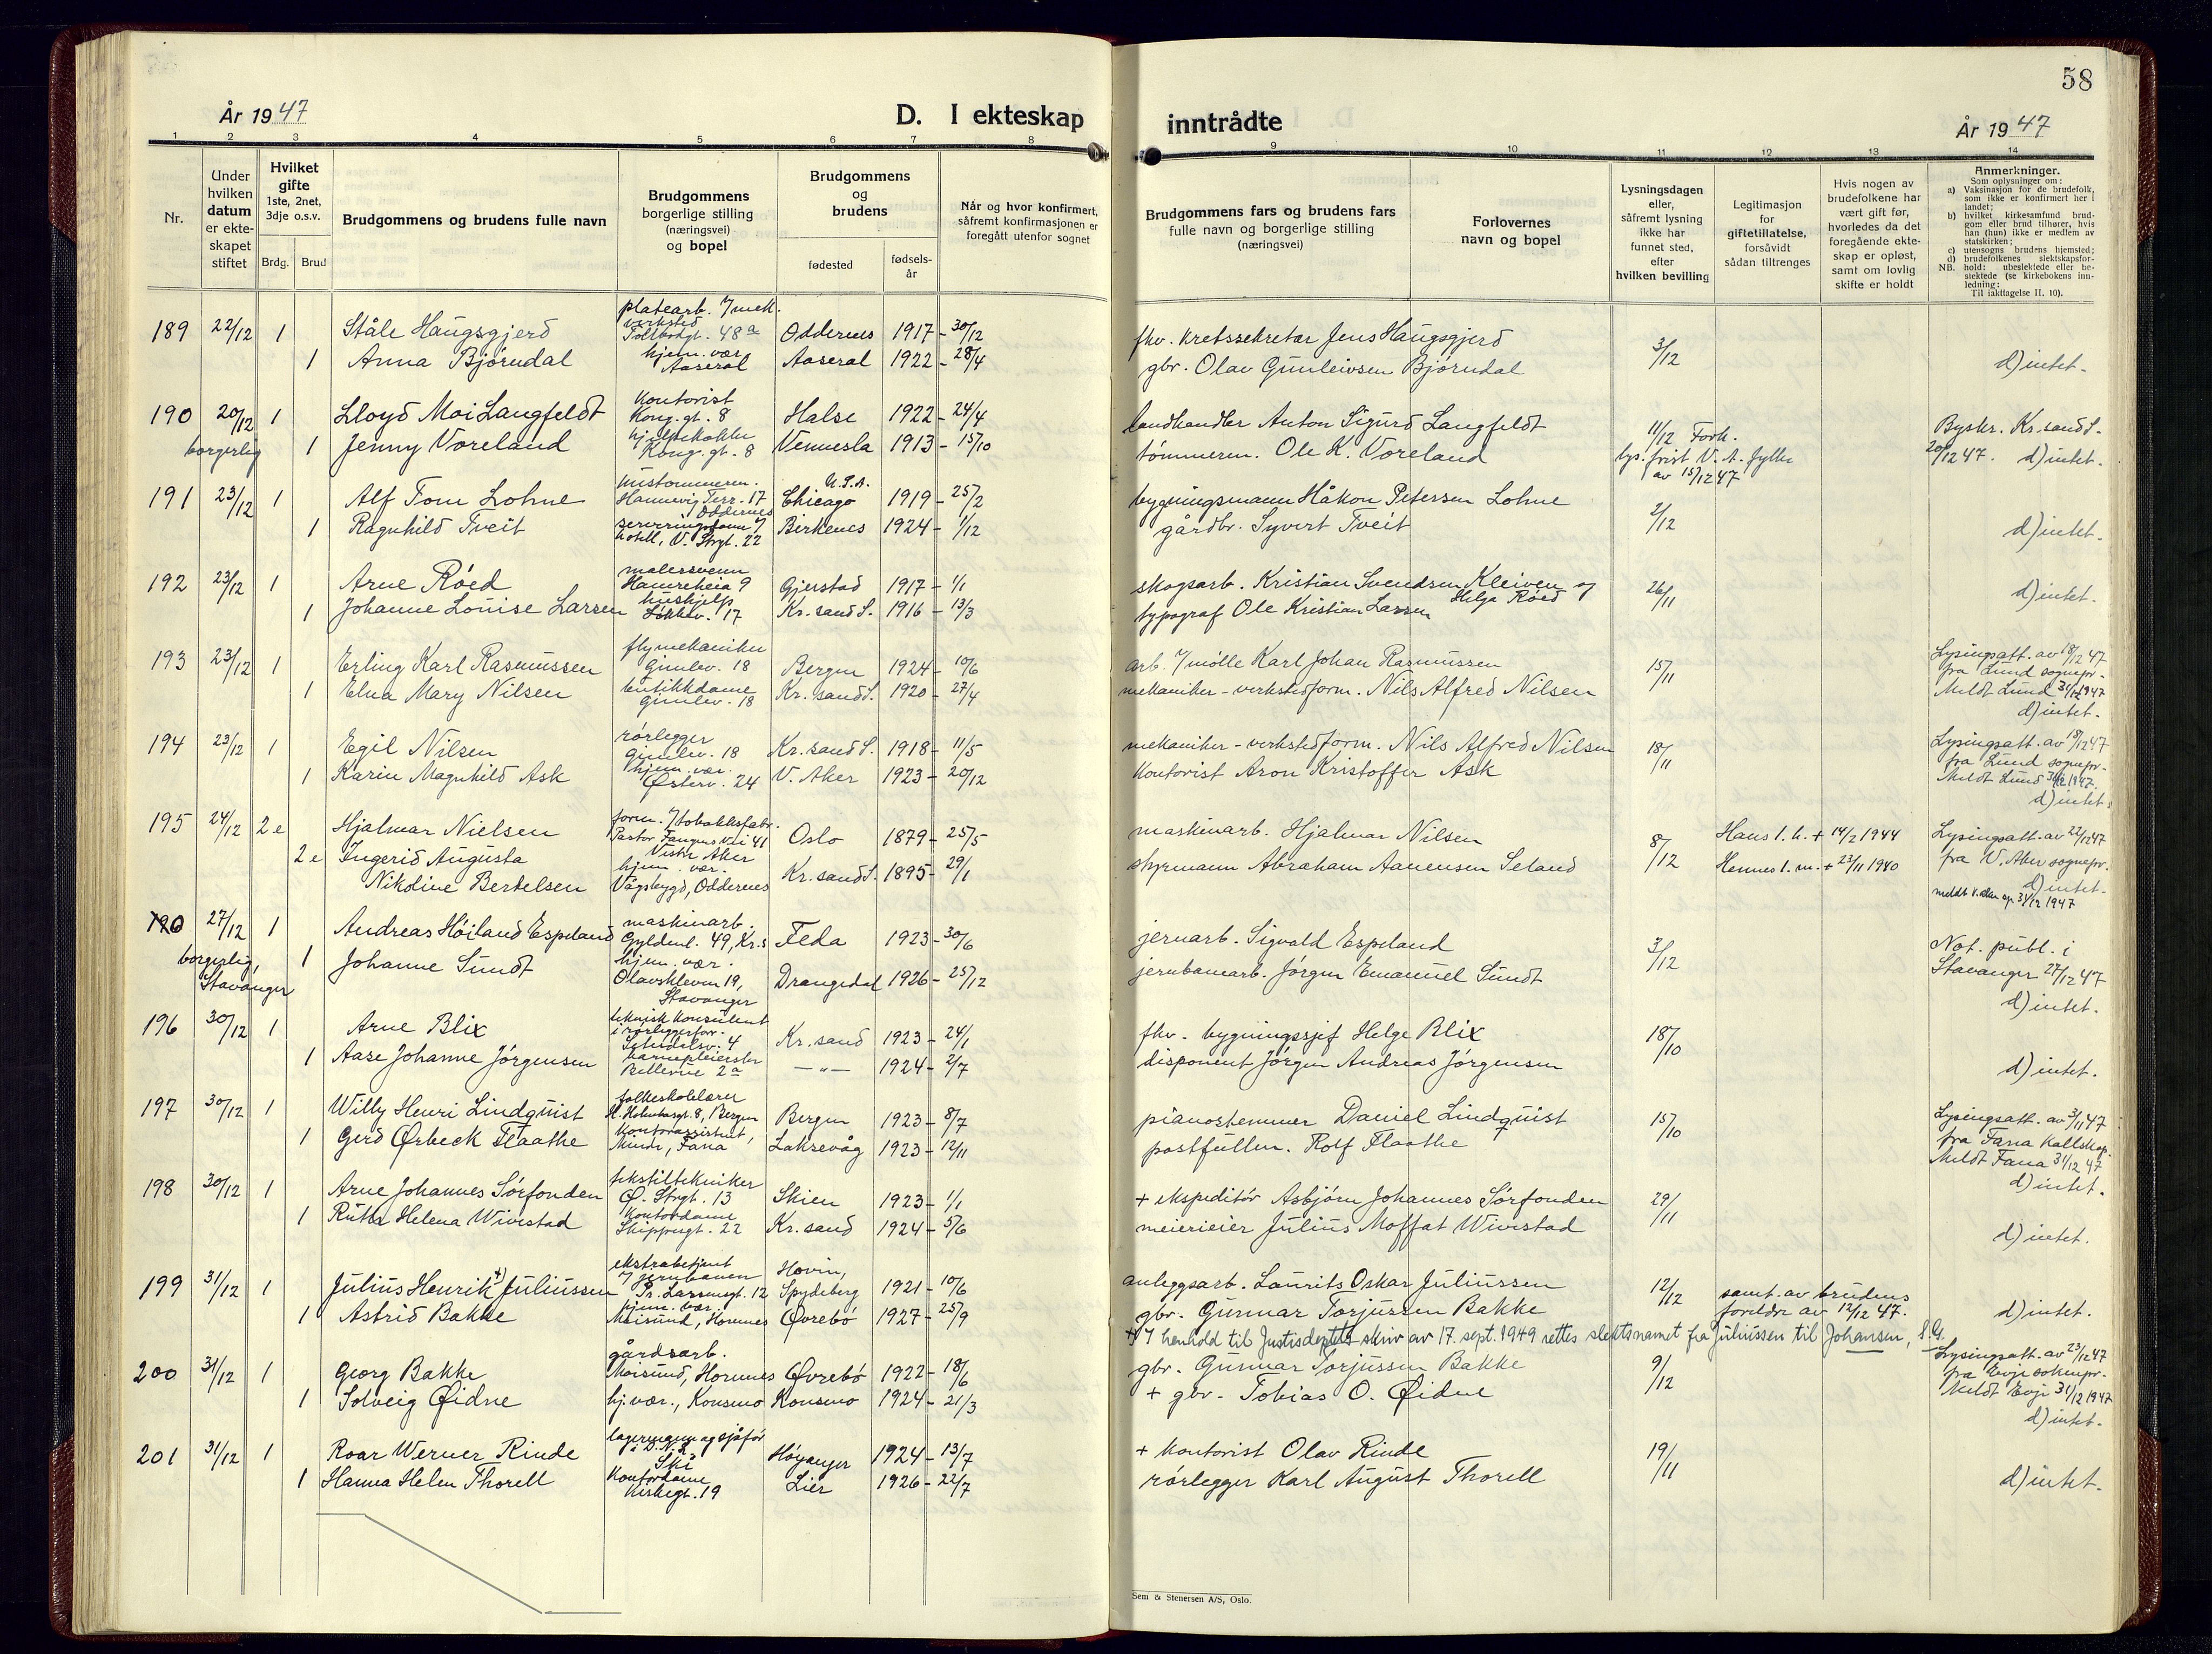 58
År 1947
D. I ekteskap inntrådte
År 1947
1 2 3 4 5 6 7 8 9 10 11 12 13 14
Nr.
Under hvilken datum er ekteskapet stiftet
Hvilket gifte 1ste, 2net, 3dje o.s.v.
Brdg. Brud
Brudgommens og brudens fulle navn
Brudgommens borgerlige stilling (næringsvei) og bopel
Brudgommens og brudens
fødested
fødsels-år
Når og hvor konfirmert, såfremt konfirmasjonen er foregått utenfor sognet
Brudgommens fars og brudens fars fulle navn og borgerlige stilling (næringsvei)
Forlovernes navn og bopel
Lysningsdagen eller, såfremt lysning ikke har funnet sted, efter hvilken bevilling
Legitimasjon for giftetillatelse, forsåvidt sådan tiltrenges
Hvis nogen av brudefolkene har vært gift før, hvorledes da det foregående ekteskap er opløst, samt om lovlig skifte er holdt
Anmerkninger.
Som oplysninger om:
a) Vaksinasjon for de brudefolk, som ikke er konfirmert her i landet;
b) hvilket kirkesamfund brudgom eller brud tilhører, hvis han (hun) ikke er medlem av statskirken;
c) utensogns brudens hjemsted;
d) brudefolkenes slektskapsforhold: ubeslektede eller beslektede (se kirkebokens innledning:
NB. Til iakttagelse II. 10).
189 22/12 1 Ståle Haugsgjerd platearb. 7/mek. verksted Tollbodgt. 48a Oddernes 1917 - 30/12 fhv. kretssekretær Jens Haugsgjerd 3/12
1 Anna Bjørndal hjem. vær. Aaseral Aaseral 1922 - 28/4 gbr. Olav Gunleivsen Bjørndal d) intet.
190 20/12 1 Lloyd Moi Langfeldt kontorist Kong. gt. 8 Halse 1922 - 24/4 landhandler Anton Sigurd Langfeldt 11/12 Fork. lys. frist V. A. fylke av 15/12 47 Byskr. Kr.sand S. 20/12 47. d) intet.
borgerlig 1 Jenny Vöreland hjelpekokke Kong. gt. 8 Vennesla 1913 - 15/10 tömmerm. Ole K. Vöreland
191 23/12 1 Alf Tom Lohne Hannevig Terr. 17 Oddernes U.S.A. Chicago 1919 - 25/2 bygningsmann Håkon Petersen Lohne 2/12
1 Ragnhild Tveit hotell, V. Strgt. 22 Birkenes 1924 - 1/12 gårdbr. Syvert Tveit d) intet.
192 23/12 1 Arne Röed malersvenn Hamreheia 9 Gjerstad 1917 - 1/1 skogsarb. Kristian Svendsen Kleiven og Helga Röed 26/11 d) intet.
1 Johanne Louise Larsen hushjelp Løkkev. 17 Kr.sand S. 1916 - 13/3 typograf Ole Kristian Larsen
193 23/12 1 Erling Karl Rasmussen flymekaniker Gimlev. 18 Bergen 1924 - 10/6 arb. 7/mølle Karl Johan Rasmussen 15/11 Lysingsatt. av 18/12 47 fra Lund sognepr. Meldt Lund 31/12 1947 d) intet.
1 Elna Mary Nilsen butikkdame Gimlev. 18 Kr.sand S. 1920 - 27/4 mekaniker - verkstedform. Nils Alfred Nilsen
194 23/12 1 Egil Nilsen rörlegger Gimlev. 18 Kr.sand S. 1918 - 11/5 mekaniker - verkstedform. Nils Alfred Nilsen 18/11 Lysingsatt. av 18/12 47 fra Lund sognepr. Meldt Lund 31/12 1947. d) intet.
1 Karin Magnhild Ask hjem. vær. Østerv. 24 V. Aker 1923 - 20/12 kontorist Aron Kristoffer Ask
195 24/12 2e Hjalmar Nielsen form. 7/tobakksfabr. Pastor Fangens Vei 41 Vestre Aker Oslo 1879 - 25/5 maskinarb. Hjalmar Nilsen 8/12 Hans 1. h. + 14/2 1944 Lysingsatt. av 22/12 47 fra V. Aker sognepr. d) intet.
2e Ingerid Augusta Nikoline Bertelsen hjem. vær. Vågsbygd, Oddernes Kr.sand S. 1895 - 29/1 styrmann Abraham Aanensen Seland Hennes 1. m. + 23/11 1940 31/12 1947
190 27/12 1 Andreas Höiland Espeland maskinarb. Gyldenl. 49, Kr.s Feda 1923 - 30/6 jernarb. Sigvald Espeland 3/12 Not. publ. i Stavanger 27/12 47 d) intet.
borgerlig, Stavanger 1 Johanne Sundt hjem. vær. Olavskleven 19, Stavanger Drangedal 1926 - 25/12 jernbanearb. Jörgen Emanuel Sundt
196 30/12 1 Arne Blix teknisk konsulent i rørleggerfor. 4 Kr.sand 1923 - 24/1 fhv. bygningssjef Helge Blix 18/10
1 Aase Johanne Jörgensen barnepleierske Bellevue 2a —"— 1924 - 2/7 disponent Jörgen Andreas Jörgensen d) intet.
197 30/12 1 Willy Henri Lindquist folkeskolelærer Bergen Bergen 1923 - 8/7 pianostemmer Daniel Lindquist 15/10 Lysingsatt. av 3/11 47 fra Fana Meldt Fana 31/12 47 d) intet.
1 Gerd Ørbeck Flaathe kontorassistent, Minde, Fana Laksevåg 1923 - 12/11 postfullm. Rolf Flaathe
198 30/12 1 Arne Johannes Sörfonden tekstiltekniker Ø. Strgt. 13 Skien 1923 - 1/1 + ekspeditör Asbjörn Johannes Sörfonden 29/11
1 Ruth Helena Wivestad kontordame Skippergt. 22 Kr.sand 1924 - 5/6 meierieier Julius Moffat Wivestad d) intet.
199 31/12 1 Julius Henrik +) Juliussen ekstrabetjent 7/jernbanen Pr. Larsensgt. 12 Hovin, Spydeberg 1921 - 10/6 anleggsarb. Laurits Oskar Juliussen 12/12 samt. av brudens foreldre av 12/12 47. d) intet.
1 Astrid Bakke hjem. vær. Moisund, Hornnes Øvrebö 1927 - 25/9 gbr. Gunnar Torjussen Bakke
+) I henhold til Justisdeptets skriv av 17. sept. 1949 rettes slektsnamet fra Juliussen til Johansen, S.G.
200 31/12 1 Georg Bakke gårdsarb. Moisund, Hornnes Øvrebö 1922 - 18/6 gbr. Gunnar Torjussen Bakke 9/12 Lysingsatt. av 23/12 47 fra Evje soknepr. Meldt Evje 31/12 1947 d) intet.
1 Solveig Øidne hj. vær., Konsmo Konsmo 1924 - 21/3 + gbr. Tobias O. Øidne
201 31/12 1 Roar Werner Rinde lagermann og sjåför Ski Höyanger 1924 - 13/7 + kontorist Olav Rinde 19/11
1 Hanna Helen Thorell kontordame Kirkegt. 19 Lier 1926 - 22/7 rörlegger Karl August Thorell d) intet.
Sem & Stenersen A/S, Oslo.